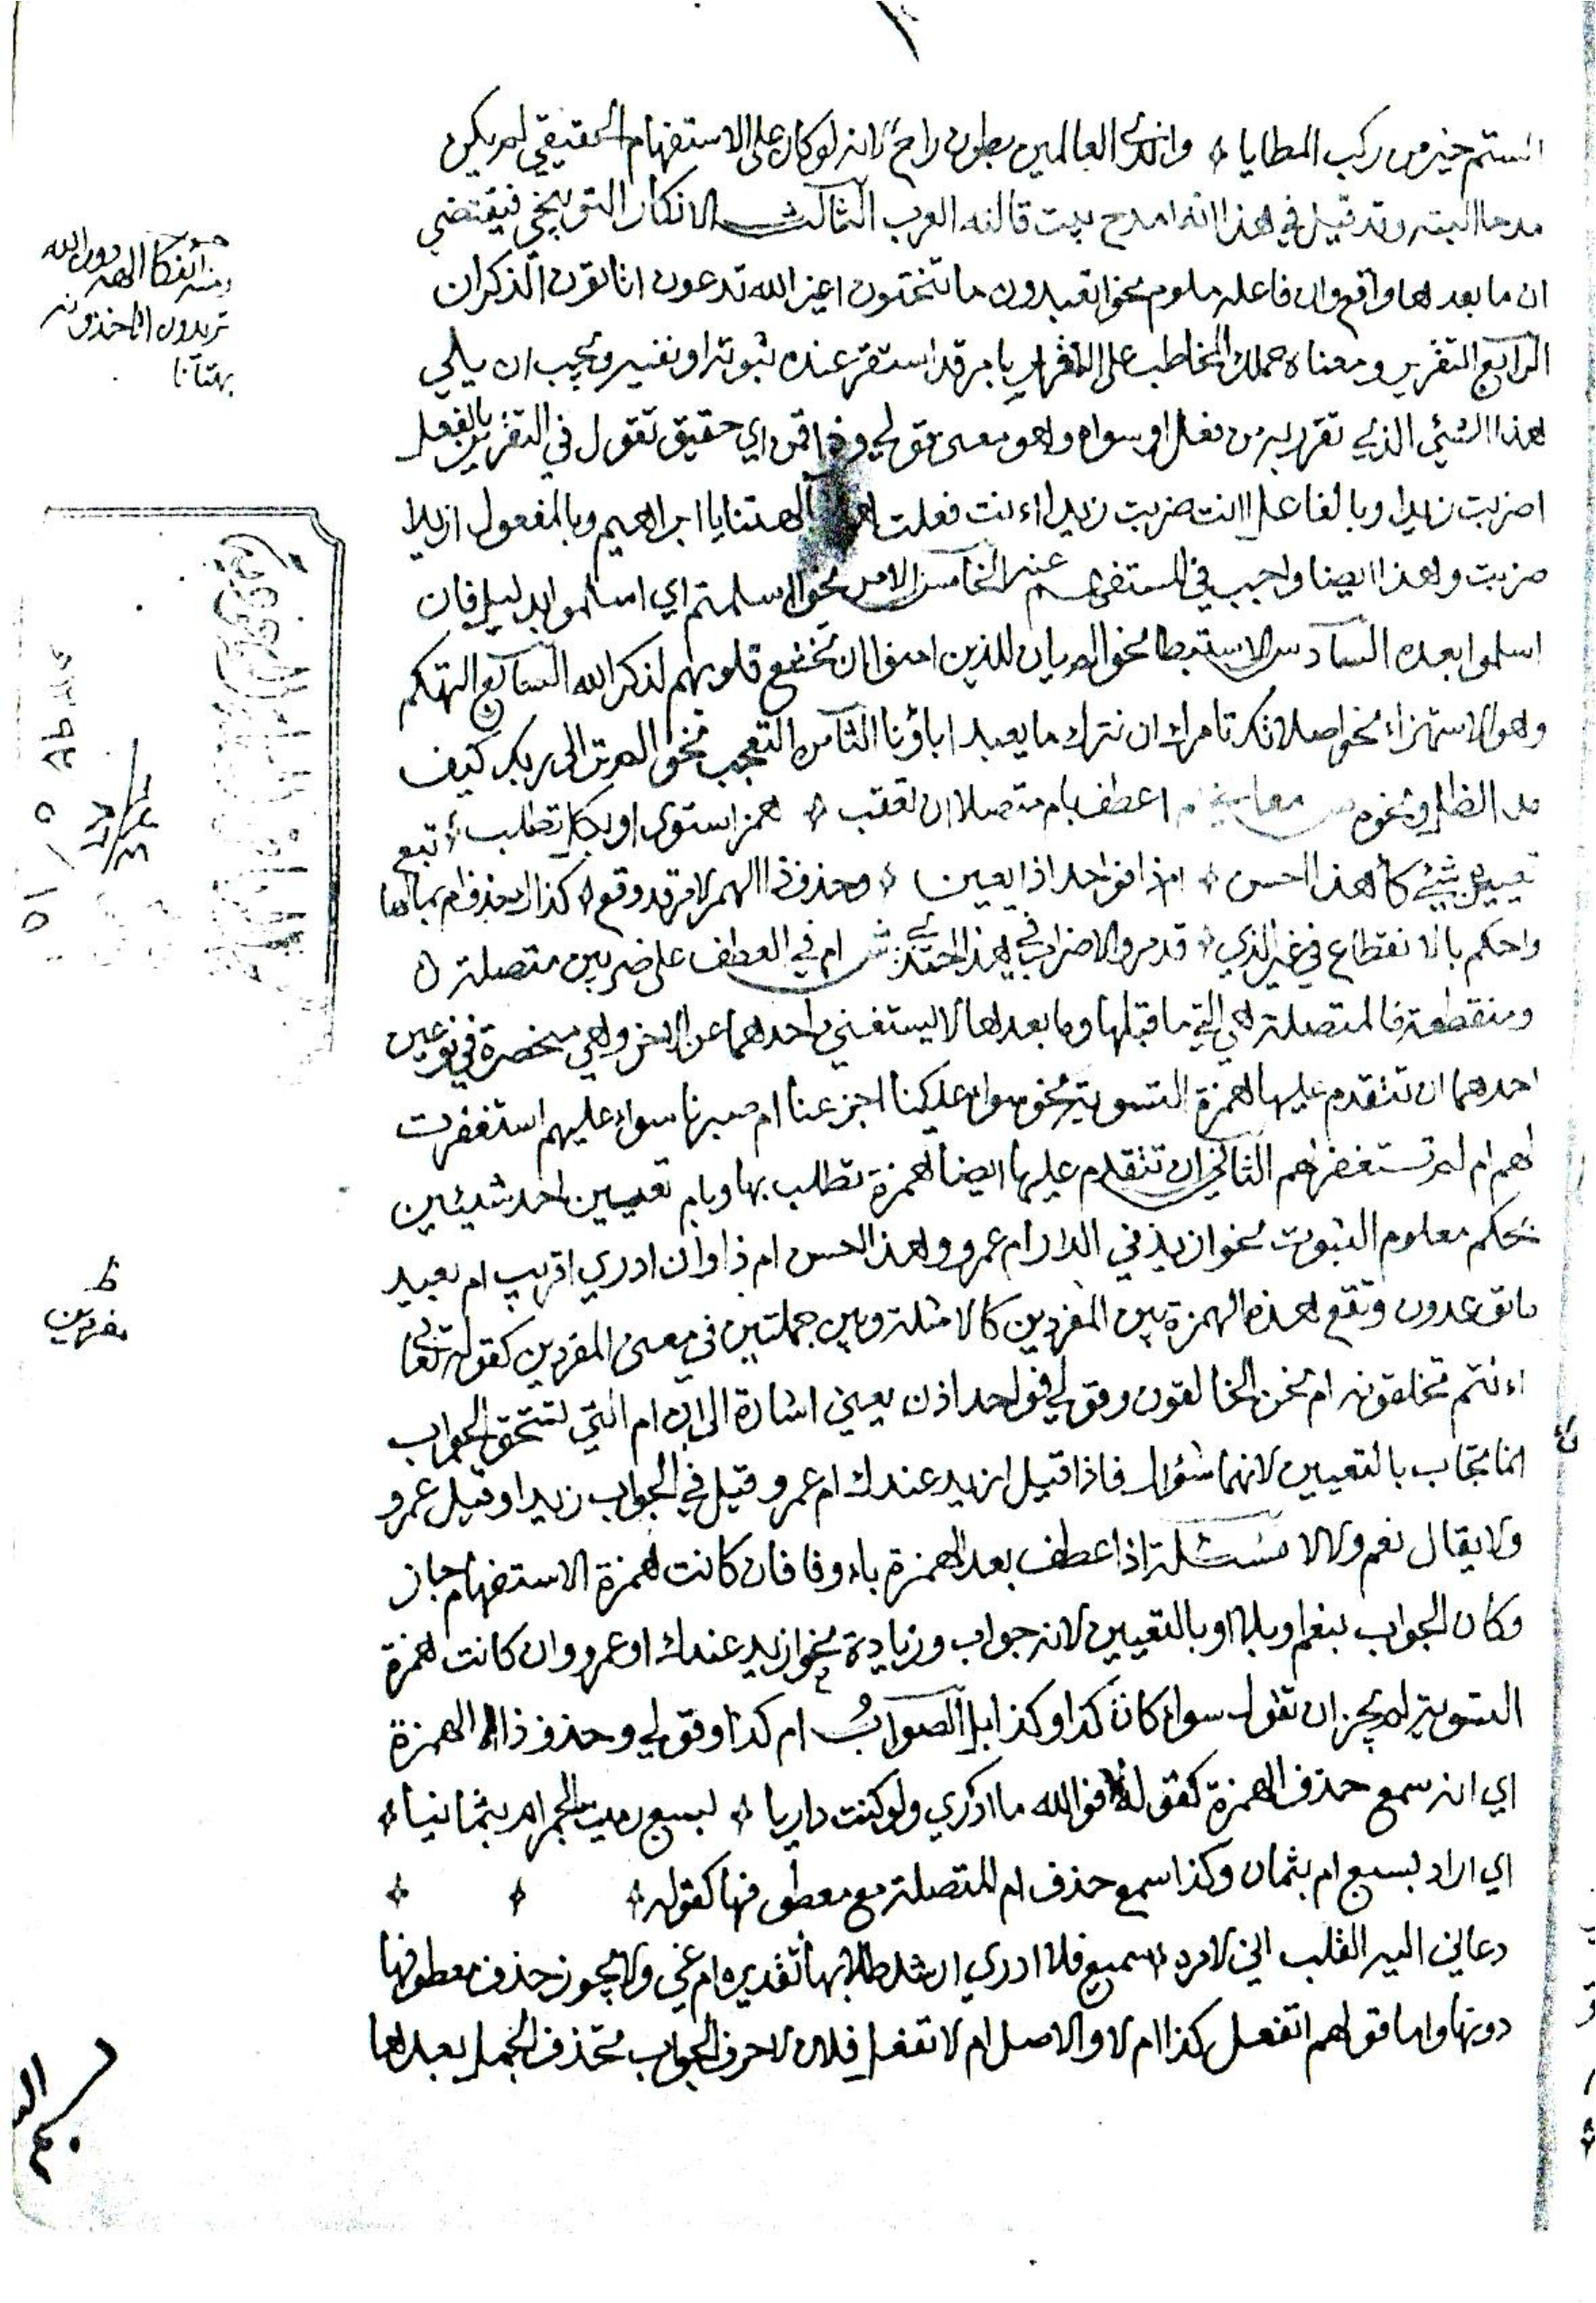 الستم خير من ركب المطايا واندى العالمين بطون راح لانه لو كان على الاستفهام الحقيقي لم يكن
مدحا البته وقد قيل في هذا انه امدح بيت قالته العرب الثالث الانكار التوبيخي فيقتضي
ان ما بعدها واقع وان فاعله ملوم نحو اتعبدون ما تنحتون اغير الله تدعون اتاتون الذكران
الرابع التقرير ومعناه حملك المخاطب على الاقرار بامر قد استقر عنده ثبوته او نفيه ويجب ان يلي
هذا الشيئ الذي تقرر به من فعل او سواه وهو معنى قولي وذا قمن اي حقيق تقول في التقرير بالفعل
اضربت زيدا وبالفاعل اانت ضربت زيدا اءنت فعلت هذا بآلهتنا يا ابراهيم وبالمفعول ازيدا
ضربت وهذا ايضا واجب في المستفهم عنه الخامس الامر نحو اءسلمتم اي اسلموا بدليل فان
اسلموا بعده السادس الاستبطا نحو الم يان للذين امنوا ان تخشع قلوبهم لذكر الله السابع التهكم
وهو الاستهزاء نحو اصلاتك تامرك ان نترك ما يعبد اباؤنا الثامن التعجب نحو الم تر الى ربك كيف
مد الظل ونحوه اعطف بام متصلا ان تعقب همز استوى او بكل تطلب تبع
تعيين شيئ كأهذا احسن ام ذا فواحد اذا يعين وحذف ذا الهمز لامر قد وقع كذاك حذف ام بمالها
واحكم بالانقطاع في غير الذي قدم والاضراب في هذا احتذي ش ام في العطف على ضربين متصلة
ومنقطعة فالمتصلة هي التي ما قبلها وما بعدها لا يستغني احدهما عن الاخر وهي منحصرة في نوعين
احدهما ان تتقدم عليها همزة التسوية نحو سواء علينا اجزعنا ام صبرنا سواء عليهم استغفرت
لهم ام لم تستغفر لهم الثاني ان تتقدم عليها ايضا همزة تطلب بها وبام تعيين احد شيئين
بحكم معلوم الثبوت نحو ازيد في الدار ام عمرو وأهذا احسن ام ذا وان ادري اقريب ام بعيد
ما توعدون وتقع هذه الهمزة بين المفردين كالامثلة وبين جملتين في معنى المفردين كقوله تعالى
اءنتم تخلقونه ام نحن الخالقون وقولي فواحد اذن يعين اشارة الى ان ام التي تستحق الجواب
انما تجاب بالتعيين لانها سؤال فاذا قيل ازيد عندك ام عمرو قيل في الجواب زيد او قيل عمرو
ولا يقال نعم ولا لا مسئلة اذا عطف بعد الهمزة باو فان كانت همزة الاستفهام جاز
وكان الجواب بنعم او بلا او بالتعيين لانه جواب وزيادة نحو ازيد عندك او عمرو وان كانت همزة
التسوية لم يجز ان تقول سواء كان كذا او كذا بل الصواب ام كذا وقولي وحذف ذا الهمزة
اي انه سمع حذف الهمزة كقوله فوالله ما ادري ولو كنت داريا بسبع رمين الجمر ام بثمانيا
اي اراد ابسبع ام بثمان وكذا سمع حذف ام المتصلة مع معطوفها كقوله
دعاني اليه القلب اني لامره سميع فلا ادري ارشد طلابها تقديره ام غي ولا يجوز حذف معطوفها
دونها واما قولهم اتفعل كذا ام لا والاصل ام لا تفعل فلان لاحرف الجواب تحذف الجمل بعدها
ومنه ائفكا الهة دون الله
تريدون اتاخذونه
بهتانا
ظ
مفردين